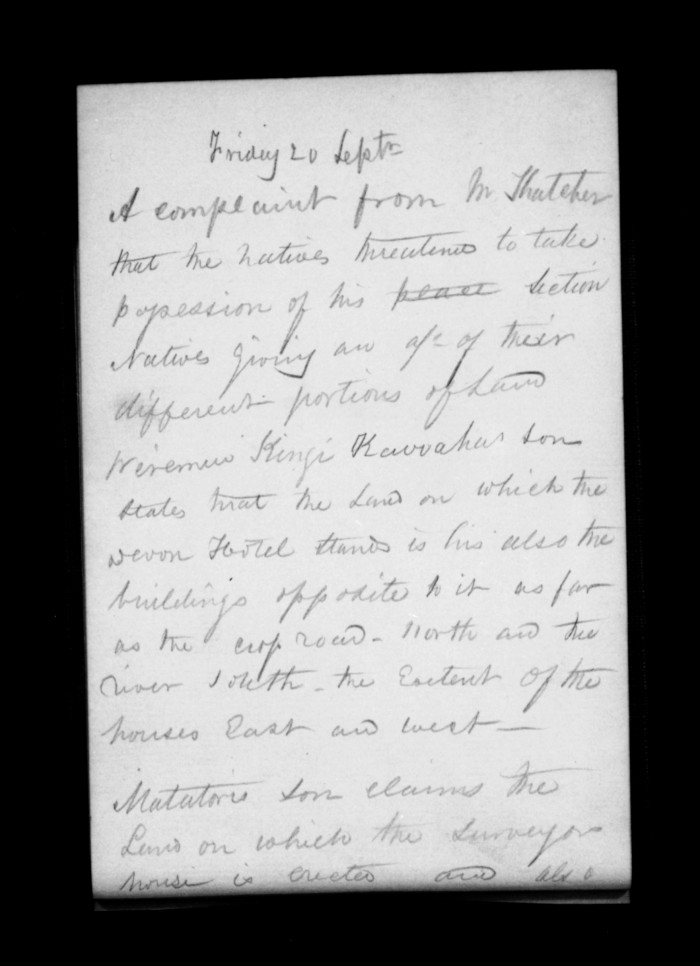 Friday 20 Septr
A complaint from Mr Thatcher
that the Natives threatened to take
possession of his place Section
Natives giving an a/c of their
different portions of Land
Wiremu Kingi Kawaahus son
states that the Land on which the
Devon Hotel stands is his also the
buildings opposite to it as far
as the cross road - North and the
river South - the Extent Of the
houses East and west —
Matatoris son claims the
Land on which the Surveyors
house is erected and also